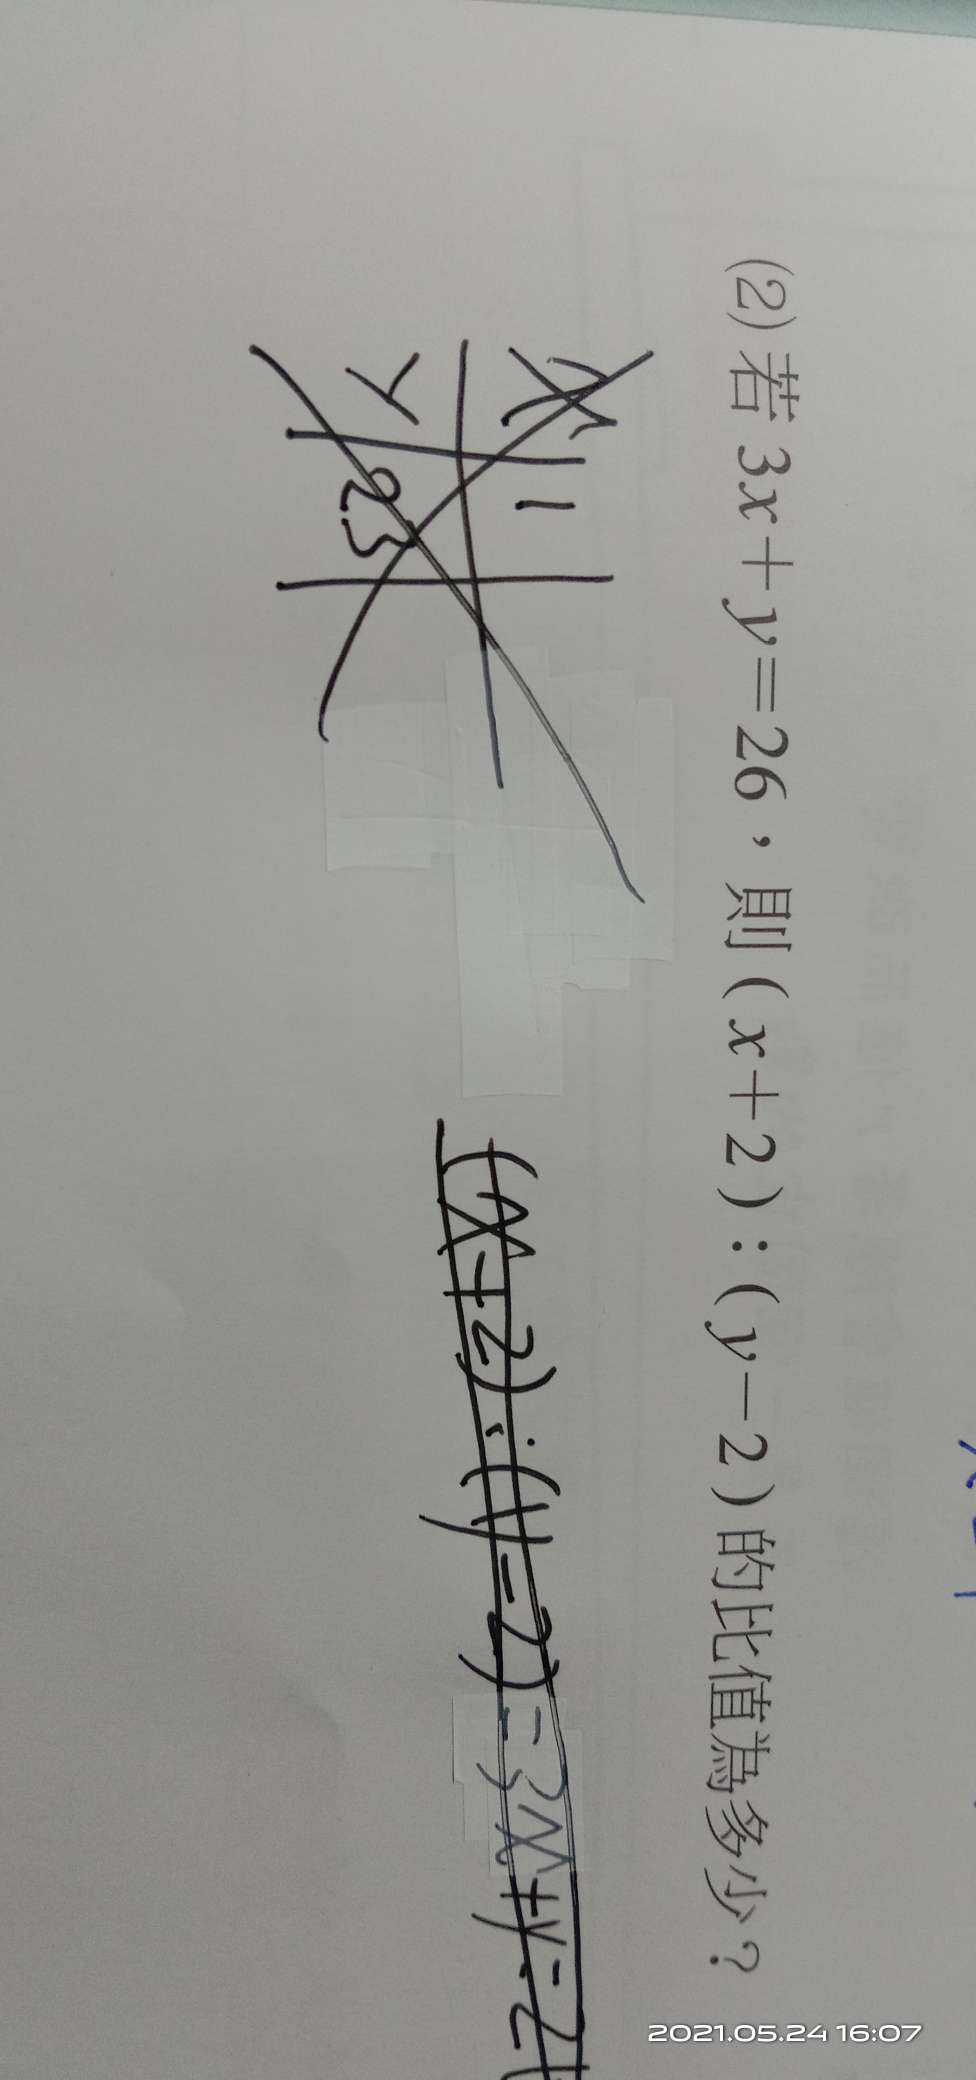 (2) 若 3x+y=26，則 (x+2):(y-2) 的比值為多少？
x 1
y 23
(x+2):(y-2)=3x+y=2
2021.05.24 16:07